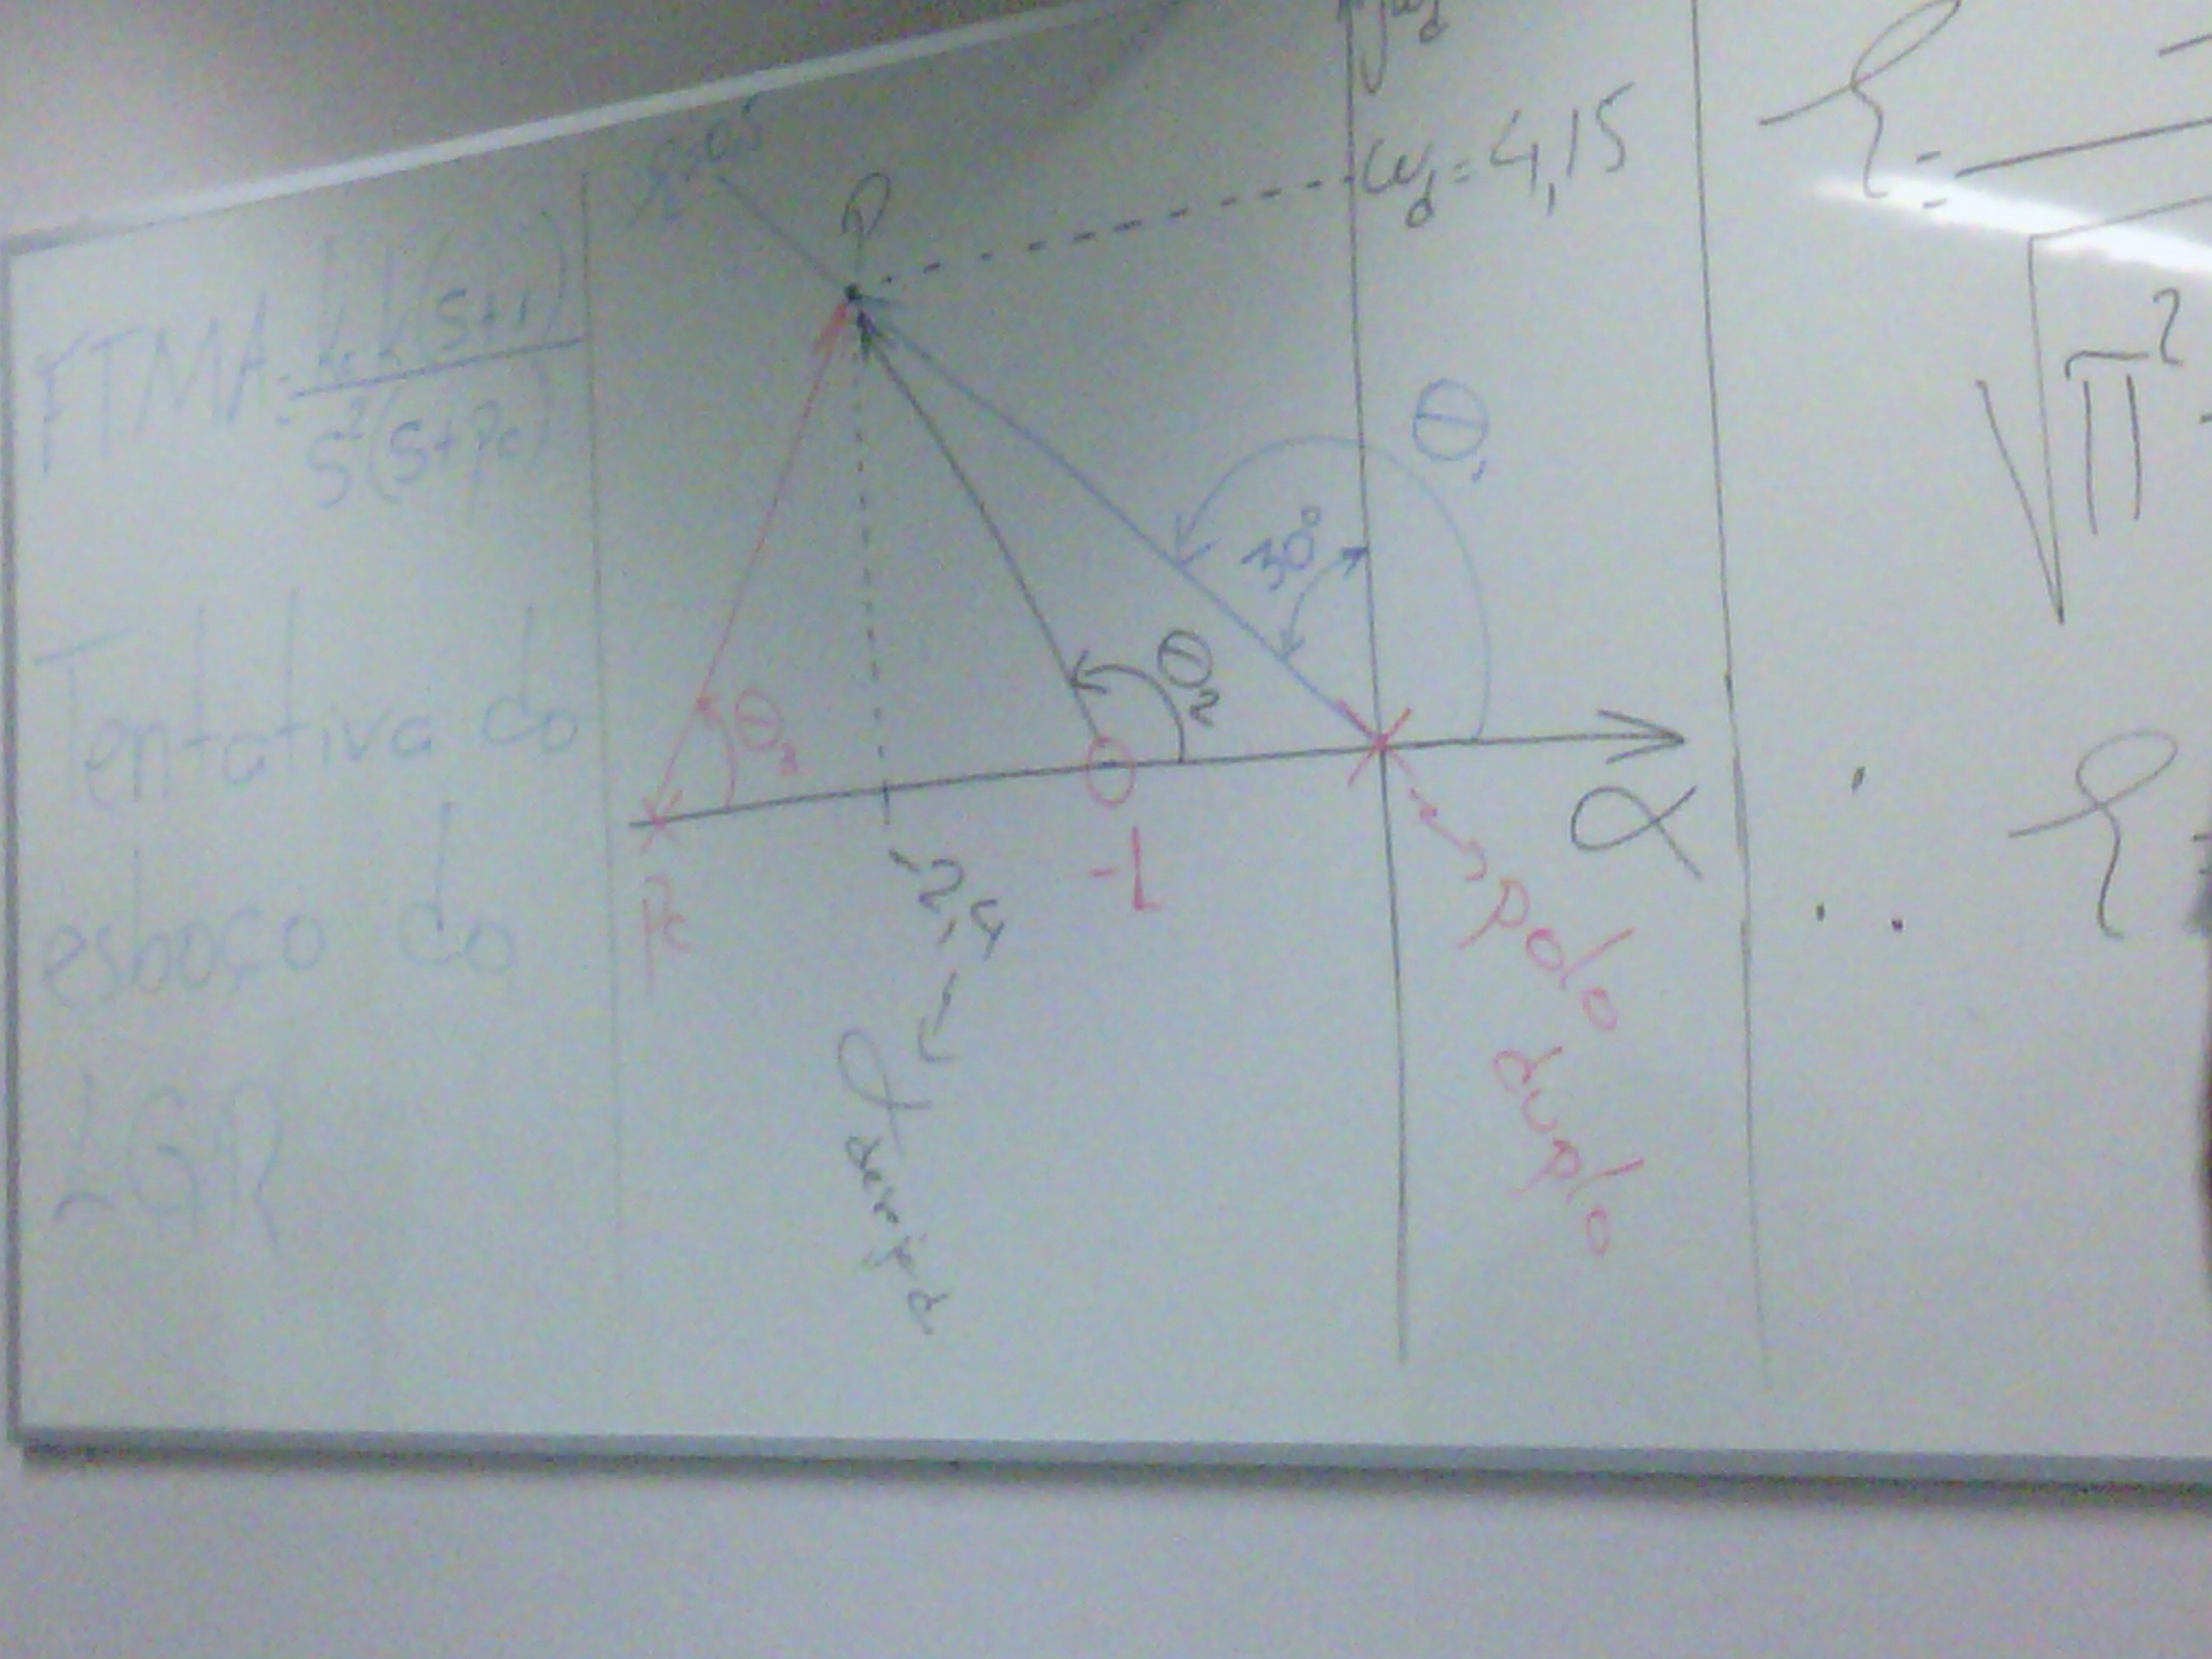 FTMA = k₁k(s+1)
s²(s+pc)
Tentativa do
esboço do
LGR
ξ=0,5
P
jωd
ωd = 4,15
θ₁
30°
θ₂
θ₃
pc
-2,4
-1
α
α desejad
polo
duplo
ξ =
√π²
∴ ξ